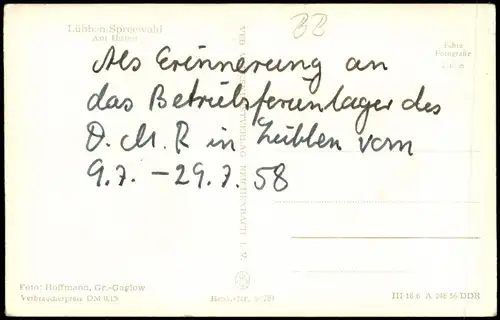 Lübben-Spreewald
Am Hafen
BB
Echte
Fotografie
Als Erinnerung an
das Betriebsferienlager des
D. M. R in Lübben vom
9.7. – 29.7.58
REICHENBACH i. V.
Foto: Hoffmann, Gr.-Gaglow
Verbraucherpreis DM
Best.-Nr.
III 16 6 A 56 DDR